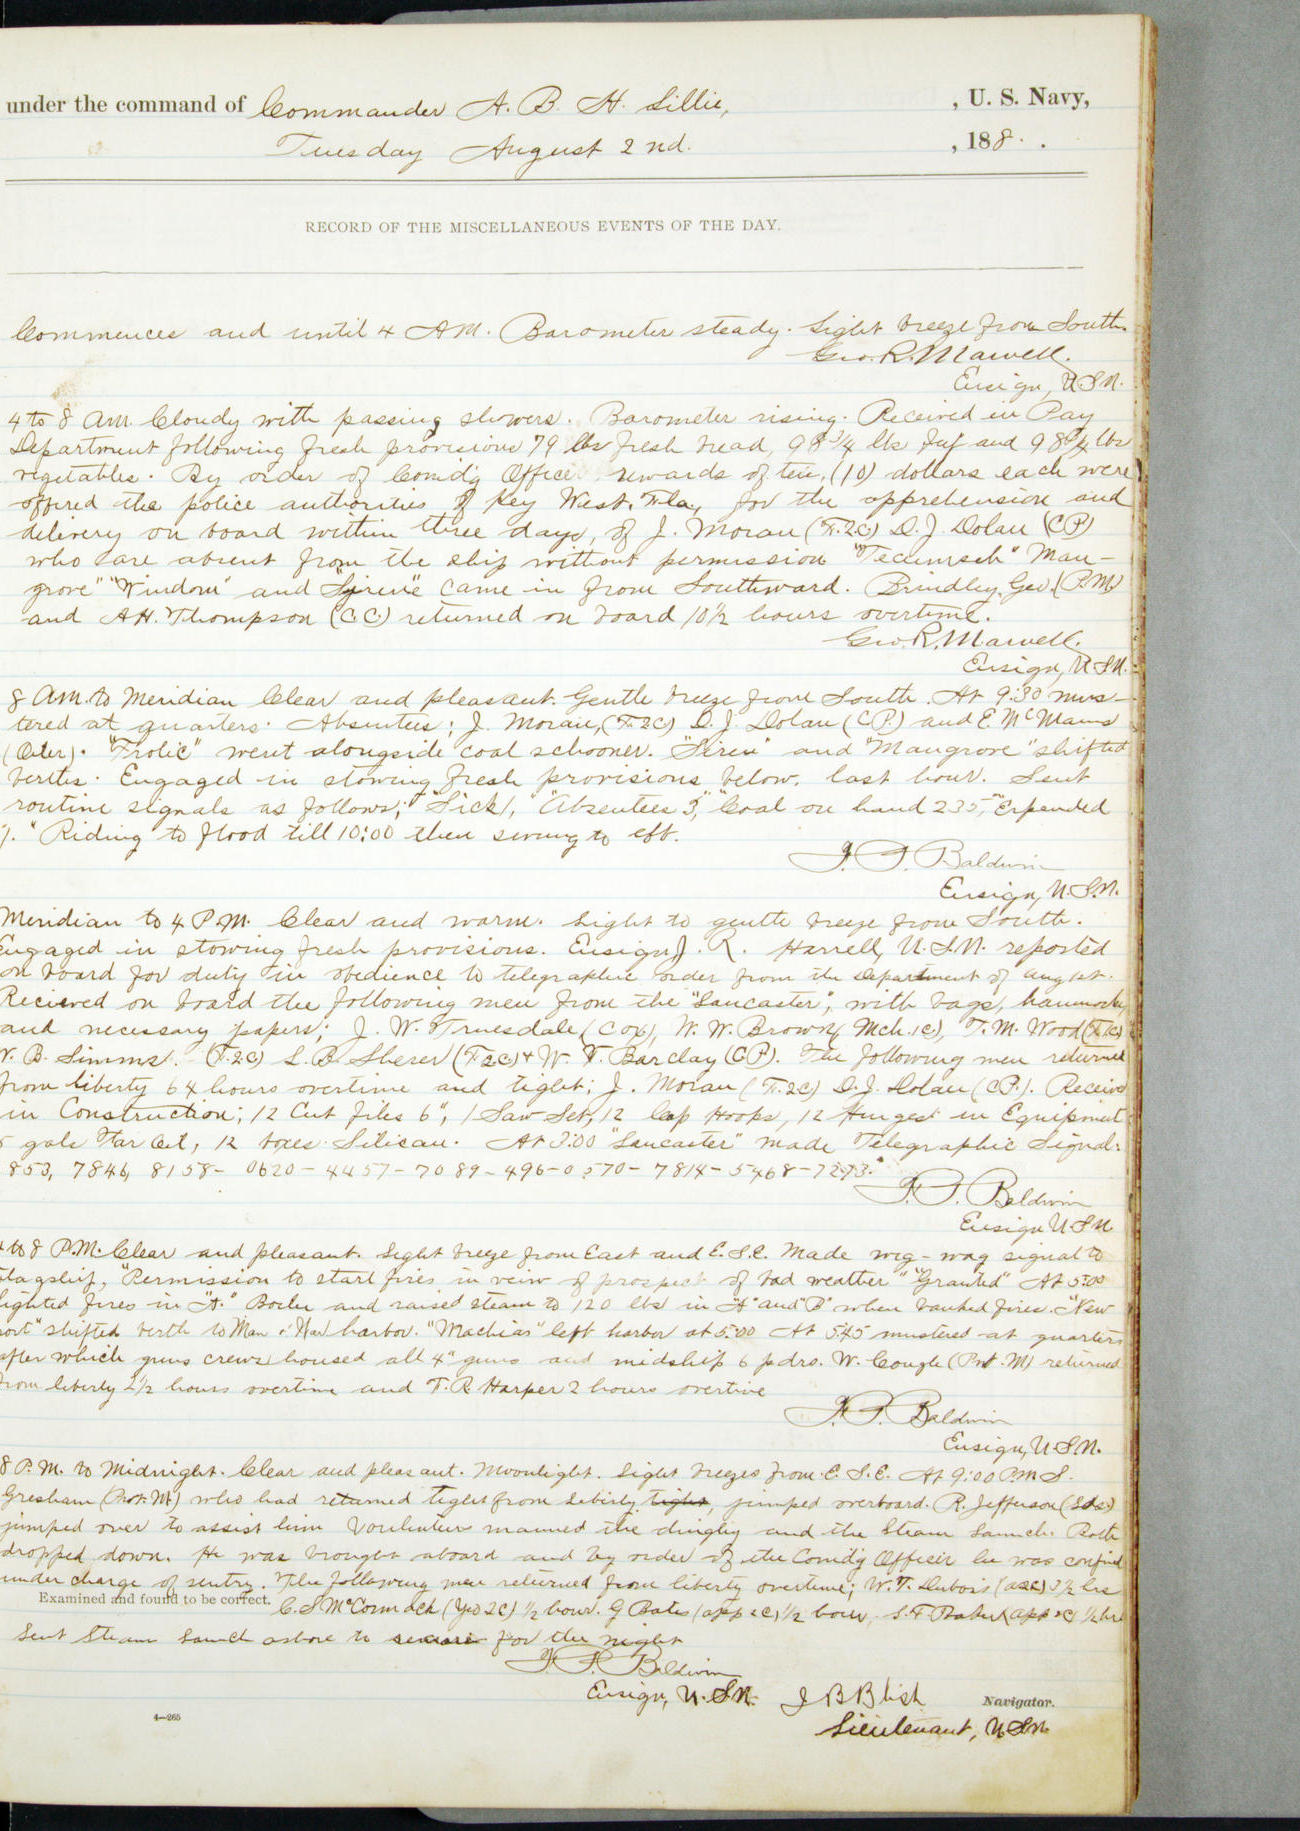 under the command of Commander A. B. H. Lillie, , U. S. Navy,
Tuesday August 2nd. , 188 .
RECORD OF THE MISCELLANEOUS EVENTS OF THE DAY.
Commences and until 4 AM. Barometer steady. Light breeze from South.
Geo. R. Marvell.
Ensign, U.S.N.
4 to 8 AM. Cloudy with passing showers. Barometer rising. Received in Pay
Department following fresh provisions 79 lbs fresh bread, 98 3/4 lbs Beef and 98 3/4 lbs
vegetables. By order of Comd'g Officer rewards of ten, (10) dollars each were
offered the police authorities of Key West, Fla, for the apprehension and
delivery on board within three days, of J. Moran (F.2C) D. J. Dolan (CP)
who are absent from the ship without permission "Tecumseh" Man-
grove" "Windom" and "Sirene" came in from Southward. Brindley, Geo. (P.M)
and A.H. Thompson (C.C.) returned on board 10 1/2 hours overtime.
Geo. R. Marvell.
Ensign, U.S.N.
8 AM. to Meridian Clear and pleasant. Gentle breeze from South. At 9:30 mus-
tered at quarters. Absentees; J. Moran, (F.2C) D. J. Dolan (CP) and E. McManus
(Oiler). "Frolic" went alongside coal schooner. "Siren" and "Mangrove" shifted
berths. Engaged in stowing fresh provisions below, last hour. Sent
routine signals as follows; "Sick 1, "Absentees 3," "Coal on hand 235," "Expended
7." Riding to flood till 10:00 then swung to ebb.
F. P. Baldwin
Ensign, U.S.N.
Meridian to 4 P.M. Clear and warm. Light to gentle breeze from South.
Engaged in stowing fresh provisions. Ensign J. R. Harrell, U.S.N. reported
on board for duty in obedience to telegraphic order from the Department of Aug 1st.
Recieved on board the following men from the "Lancaster", with bags, hammocks,
and necessary papers; J. W. Truesdale (Cox), W. W. Brown (Mch. 1C), T. M. Wood (F.1C)
W. B. Simms. (F.2C) L. B. Sherer (F.2C) + W. T. Barclay (CP). The following men returned
from liberty 64 hours overtime and tight; J. Moran (F.2C) D. J. Dolan (CP.). Received
in Construction; 12 Cut files 6", 1 Saw Set, 12 Cap Hoops, 12 Hinges in Equipment
5 gals Tar Oil, 12 boxes Silicau. At 3:00 "Lancaster" made Telegraphic Signal:
853, 7846, 8158- 0620- 4457- 7089- 496-0570- 7814-5468-7293."
F. P. Baldwin
Ensign U.S.N
4 to 8 P.M. Clear and pleasant. Light breeze from East and E.S.E. Made wig-wag signal to
flagship, "Permission to start fires in veiw of prospect of bad weather" "Granted" At 5:00
lighted fires in "A." Boiler and raised steam to 120 lbs in "A" and "B" when banked fires. "New
port" shifted berth to Man o' War harbor. "Machias" left harbor at 5:00 At 5:45 mustered at quarters
after which guns crews housed all 4" guns and midship 6 pdrs. W. Cougle (Pvt. M) returned
from liberty 2 1/2 hours overtime and T. R. Harper 2 hours overtime
F. P. Baldwin
Ensign, U.S.N.
8 P.M. to Midnight. Clear and pleasant. Moonlight. Light breezes from E.S.E. At 9:00 P.M S.
Gresham (Pvt. M) who had returned tight from Liberty tight, jumped overboard. R. Jefferson (Lds.)
jumped over to assist him Volunteers manned the dinghy and the Steam Launch. Both
dropped down. He was brought aboard and by order of the Comd'g Officer he was confined
under charge of sentry. The following men returned from liberty overtime; W. T. Dubois (O2C) 3 1/2 hrs
Examined and found to be correct. C. S. McCormack (Yeo 2C) 1/2 hour. G Bates (app 2C) 1/2 hour, S. F. Baker (app 2C 1/2 hr
Sent Steam Launch ashore to secure for the night
F. P. Baldwin
Ensign, U.S.N. J B Blish Navigator.
Lieutenant, U.S.N.
4—265